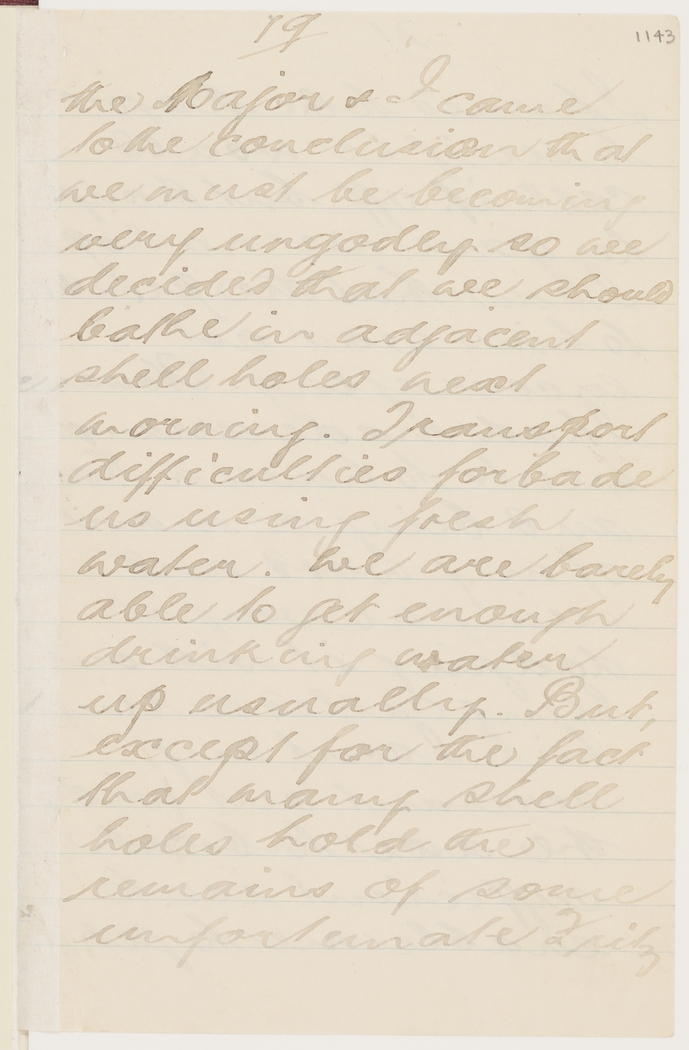 19
1143
the Major & I came
to the conclusion that
we must be becoming
very ungodly so we
decided that we should
bathe in adjacent
shell holes next
morning. Transport
difficulties forbade
us using fresh
water. We are barely
able to get enough
drinking water
up usually. But,
except for the fact
that many shell
holes hold the
remains of some
unfortunate Fritz